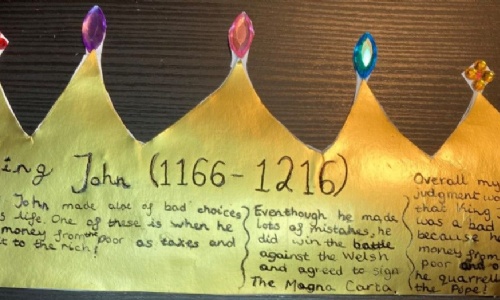 ing John (1166-1216)
John made alot of bad choices
s life. One of these is when he
money from the poor as taxes and
it to the rich!
Eventhough he made
lots of mistakes, he
did win the battle
against the Welsh
and agreed to sign
The Magna Carta.
Overall my
judgment wa
that King
was a bad
because h
money from
poor and
he quarrel
the Pope!